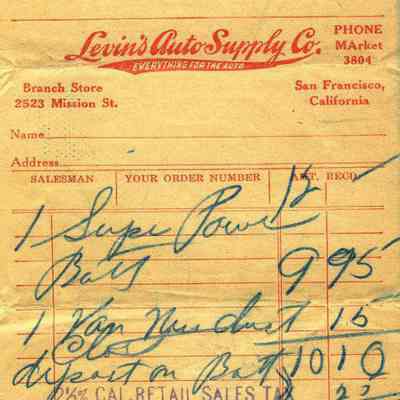 Levin's Auto Supply Co.
EVERYTHING FOR THE AUTO
PHONE
MArket
3804
Branch Store
2523 Mission St.
San Francisco,
California
Name
Address
SALESMAN YOUR ORDER NUMBER AMT. RECD.
12
1 Supe Power
Batt 9 95
1 Van 15
deposit on Batt 10 10
2½% CAL. RETAIL SALES TAX